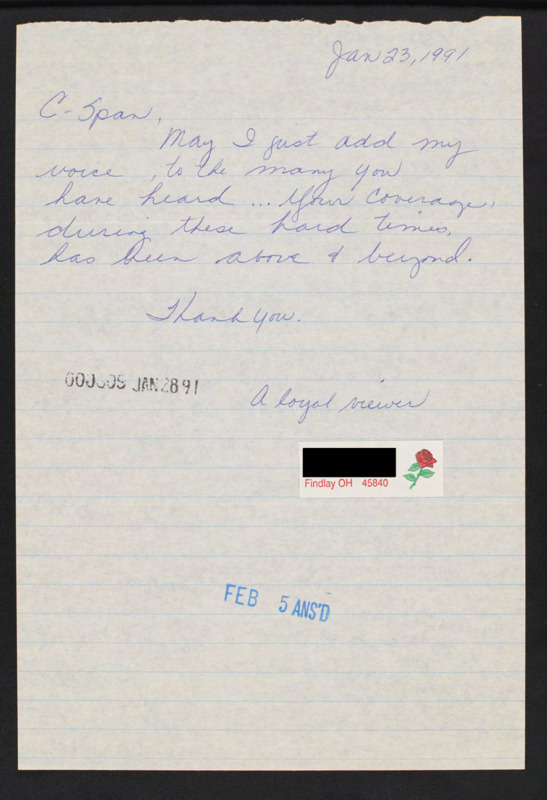 Jan 23, 1991
C-Span,
May I just add my
voice, to the many you
have heard ... Your coverage,
during these hard times,
has been above & beyond.
Thank you.
JAN 28 91
A loyal viewer
Findlay OH 45840
FEB 5 ANS'D